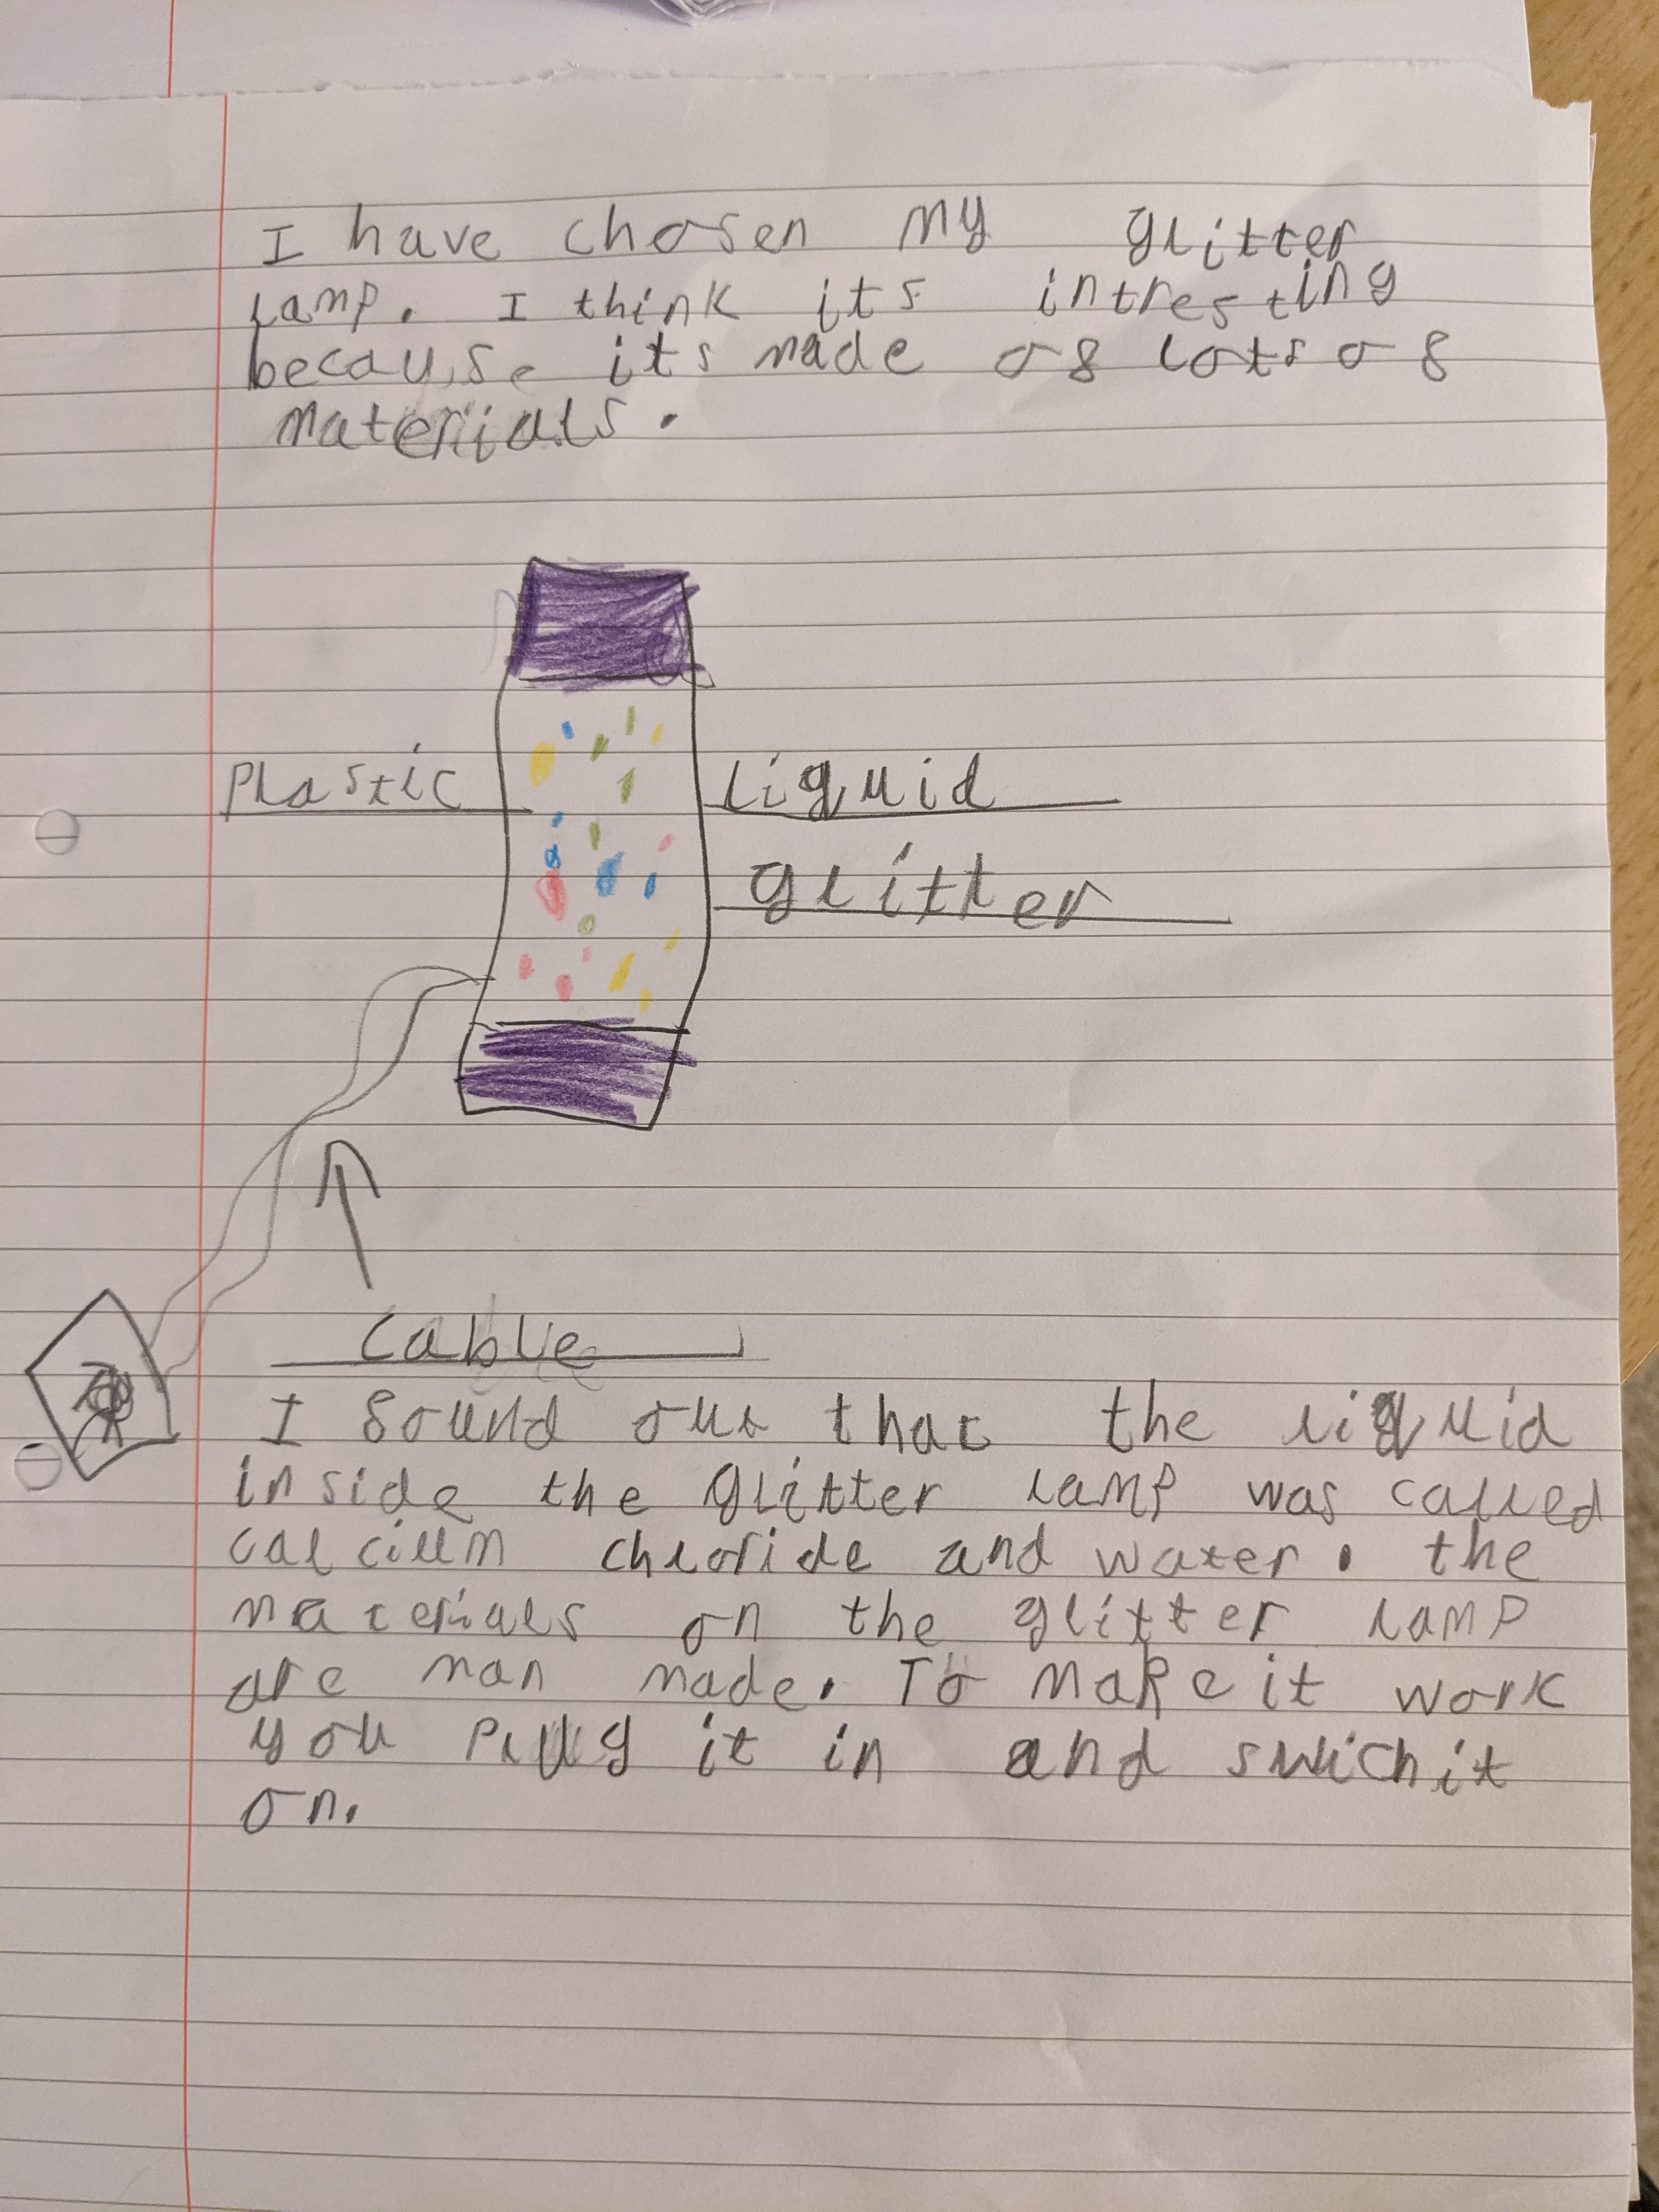 I have chosen my glitter
lamp. I think its intresting
because its made of lots of
materials.
Plastic
Liquid
glitter
cable
I found out that the liquid
inside the glitter lamp was called
calcium chloride and water. the
materials on the glitter lamp
are man made. To make it work
you plug it in and swich it
on.